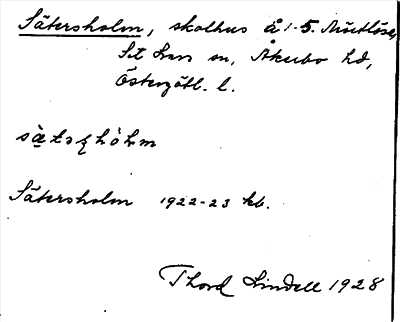 Sätersholm, skolhus å 1-5.
St Lars sn, Åkerbo hd,
Östergötl. l.
Sätersholm 1922-23 kb.
Thord Lindell 1928